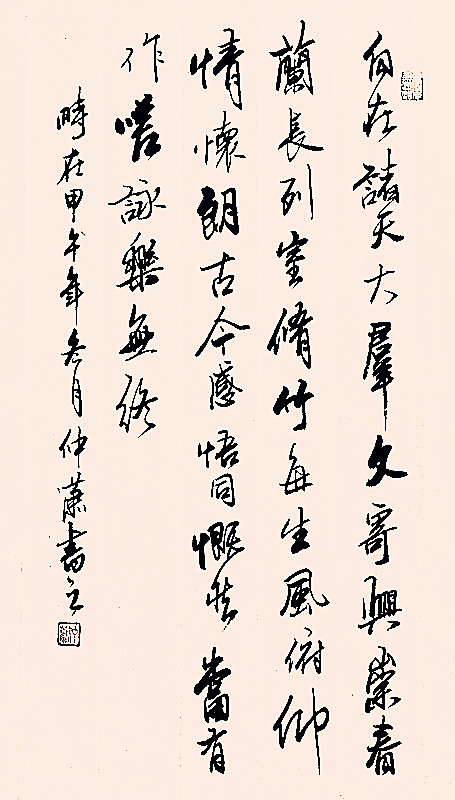 自在諸天大羣文寄興崇春
蘭長列室脩竹每生風俯仰
情懷朗古今感悟同慨然當有
作嗟詠樂無終
時在甲午年冬月仲蕭書之